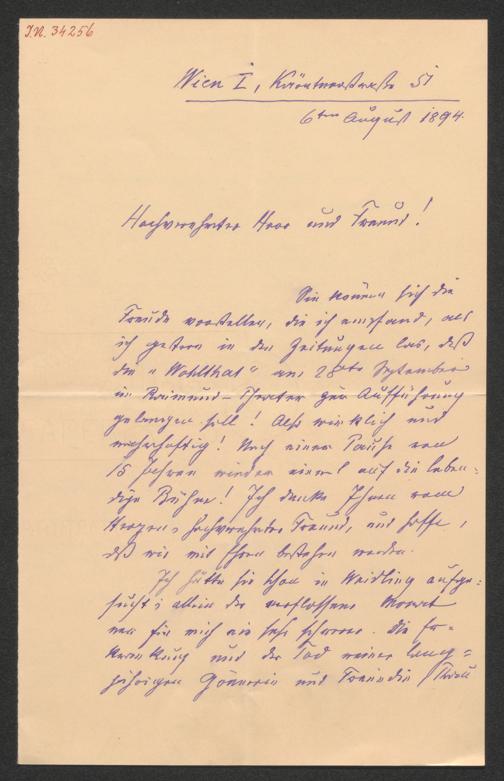 I.N. 34256
Wien I, Kärntnerstraße 51
6ten August 1894.
Hochverehrter Herr und Freund!
Sie können sich die
Freude vorstellen, die ich empfand, als
ich gestern in den Zeitungen las, daß
die „Wohlthat“ am 28ten September
im Raimund-Theater zur Aufführung
gelangen soll! Also wirklich und
wahrhaftig! Nach einer Pause von
15 Jahren wieder einmal auf die leben-
dige Bühne! Ich danke Ihnen vom
Herzen, hochverehrter Freund, und hoffe,
daß wir mit Ehren bestehen werden.
Ich hätte Sie schon in Weidling aufge-
sucht; allein der verflossene Monat
war für mich ein sehr schwerer. Die Er-
krankung und der Tod meiner lang-
jährigen Gönnerin und Freundin